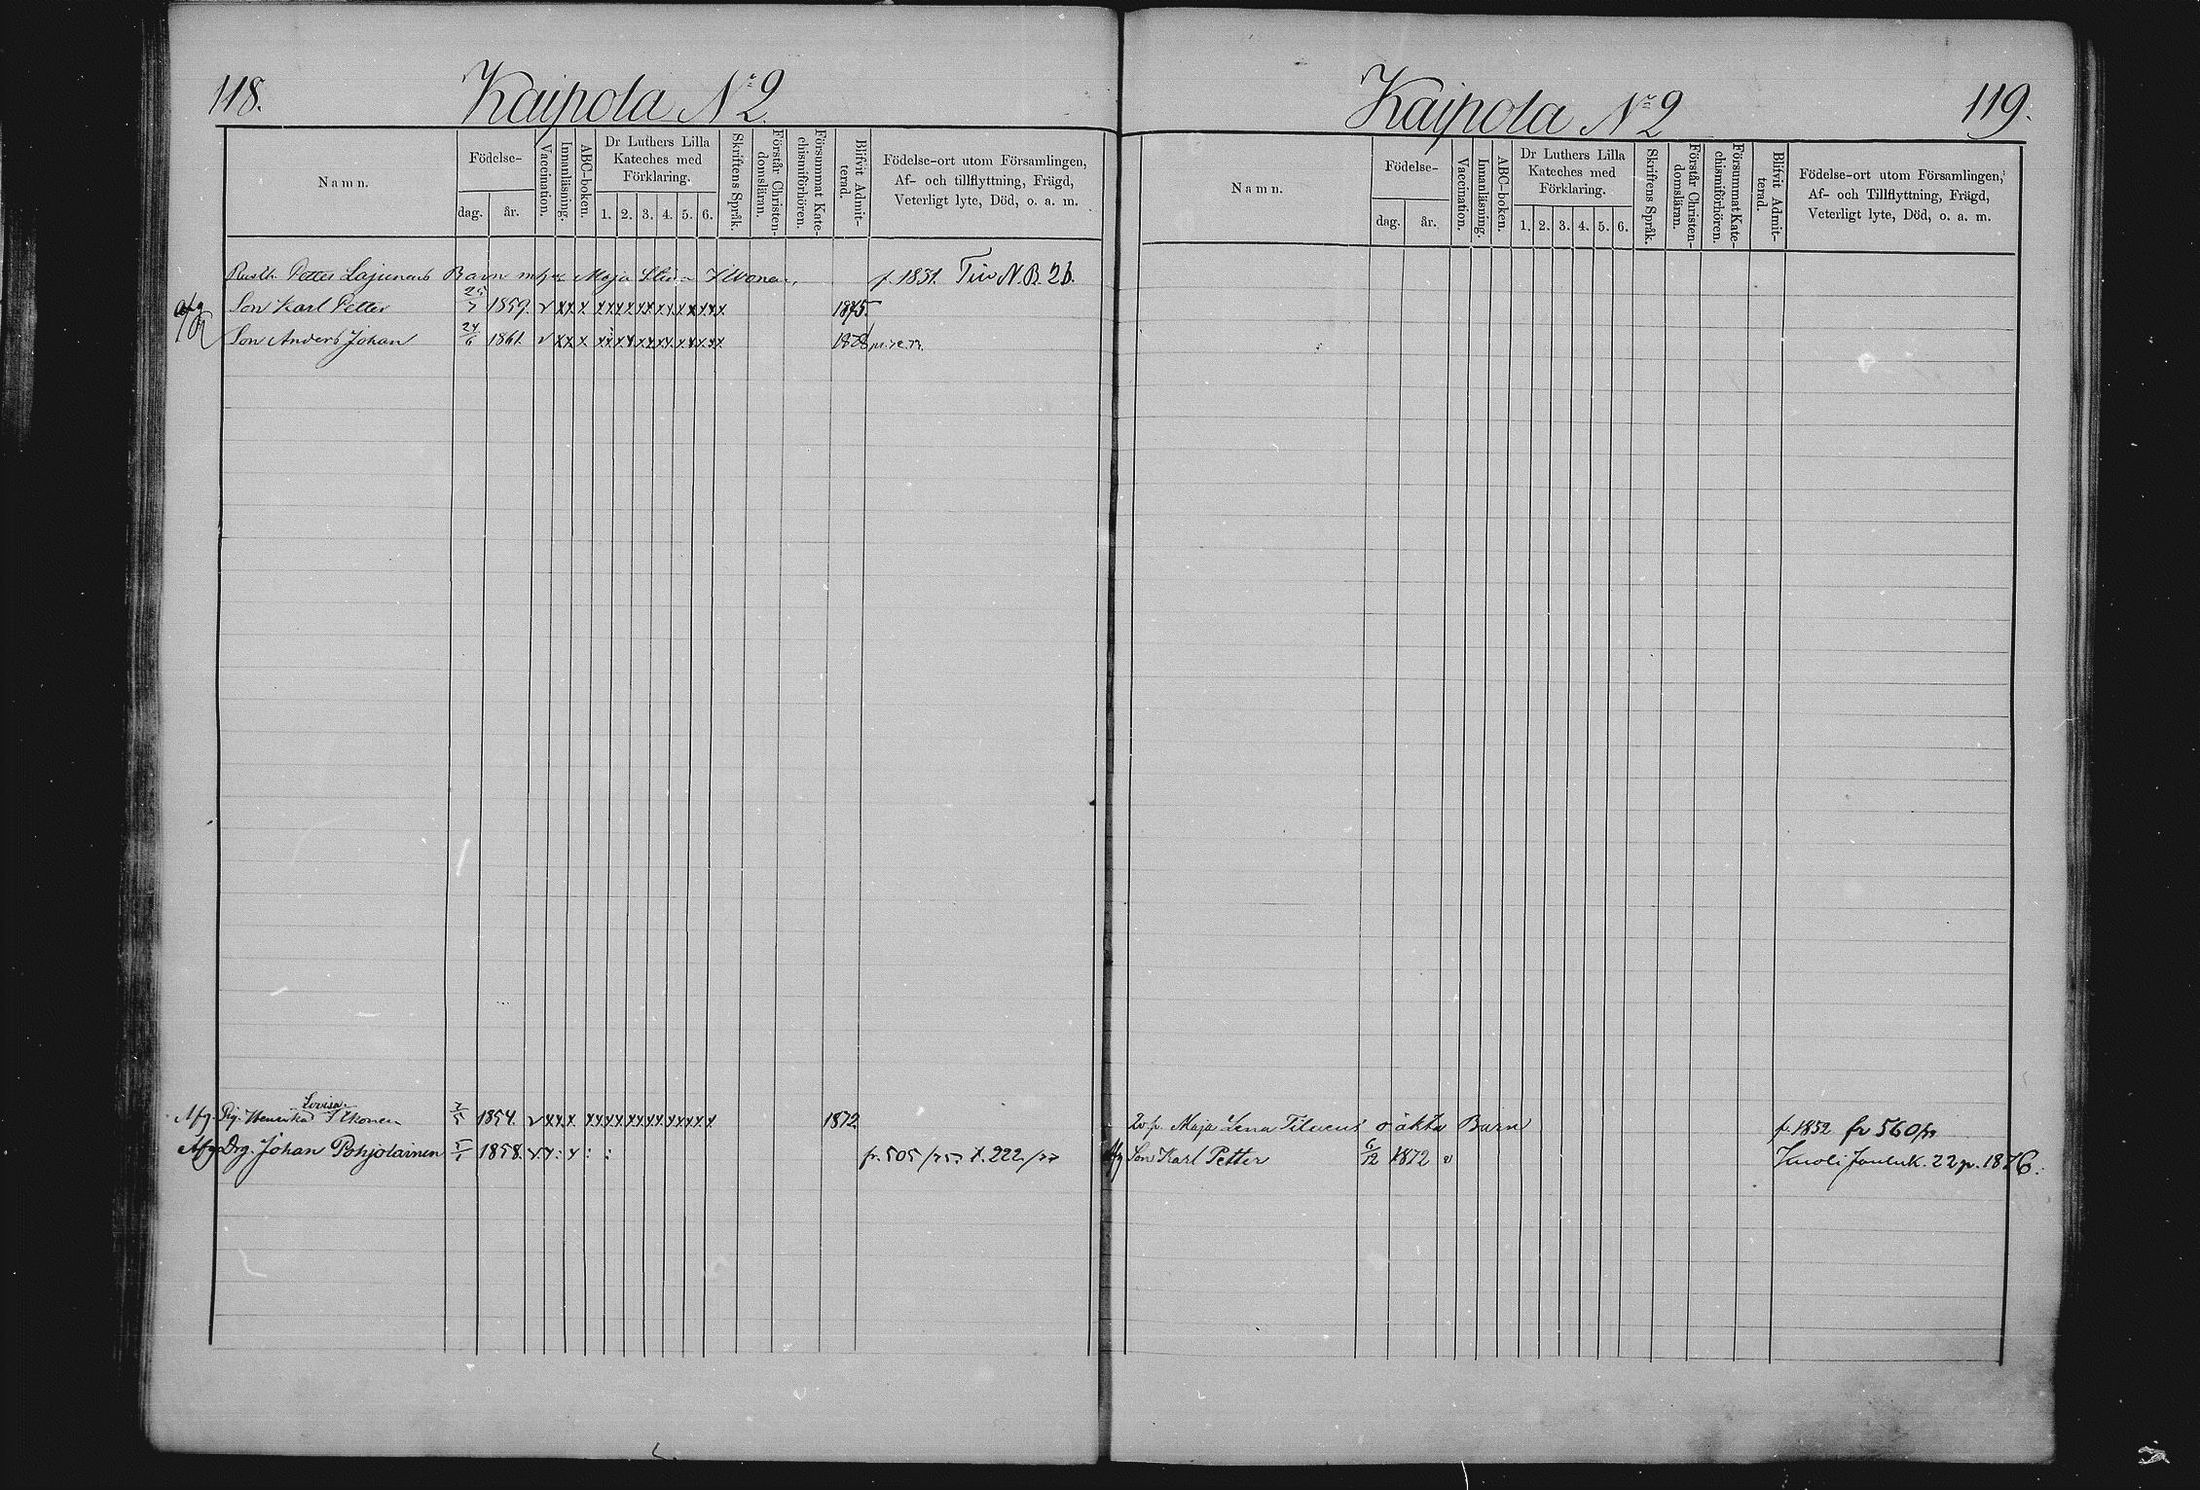 118.
Kaipola № 2.
Namn.
Födelse-
dag.
år.
Vaccination.
Innanläsning.
ABC-boken.
Dr Luthers Lilla
Kateches med
Förklaring.
1. 2. 3. 4. 5. 6.
Skriftens Språk.
Förstår Christen-
domsläran.
Försummat Kate-
chismiförhören.
Blifvit Admit-
terad.
Födelse-ort utom Församlingen,
Af- och tillflyttning, Frägd,
Veterligt lyte, Död, o. a. m.
Petter Lajunens Barn Maja f. 1831. N.B. 26.
Son Karl Petter 25/7 1859. v xx x xx xx xx xx xx xx 1875
Son Anders Johan 24/6 1861. v xx x xx xx xx xx xx xx 1878
Afg. Pig. Henrika Lovisa 7/5 1854. v xx x xx xx xx xx xx xx 1872
Afg. Drg. Johan Pohjolainen 5/1 1858. fr. 505/75 t. 222/77
Kaipola № 2
119.
Namn.
Födelse-
dag.
år.
Vaccination.
Innanläsning.
ABC-boken.
Dr Luthers Lilla
Kateches med
Förklaring.
1. 2. 3. 4. 5. 6.
Skriftens Språk.
Förstår Christen-
domsläran.
Försummat Kate-
chismiförhören.
Blifvit Admit-
terad.
Födelse-ort utom Församlingen,
Af- och Tillflyttning, Frägd,
Veterligt lyte, Död, o. a. m.
Maja Lena oäkta Barn f. 1852 fr 560/
Afg Son Karl Petter 6/12 1872 v Kuoli 22 p. 1876.